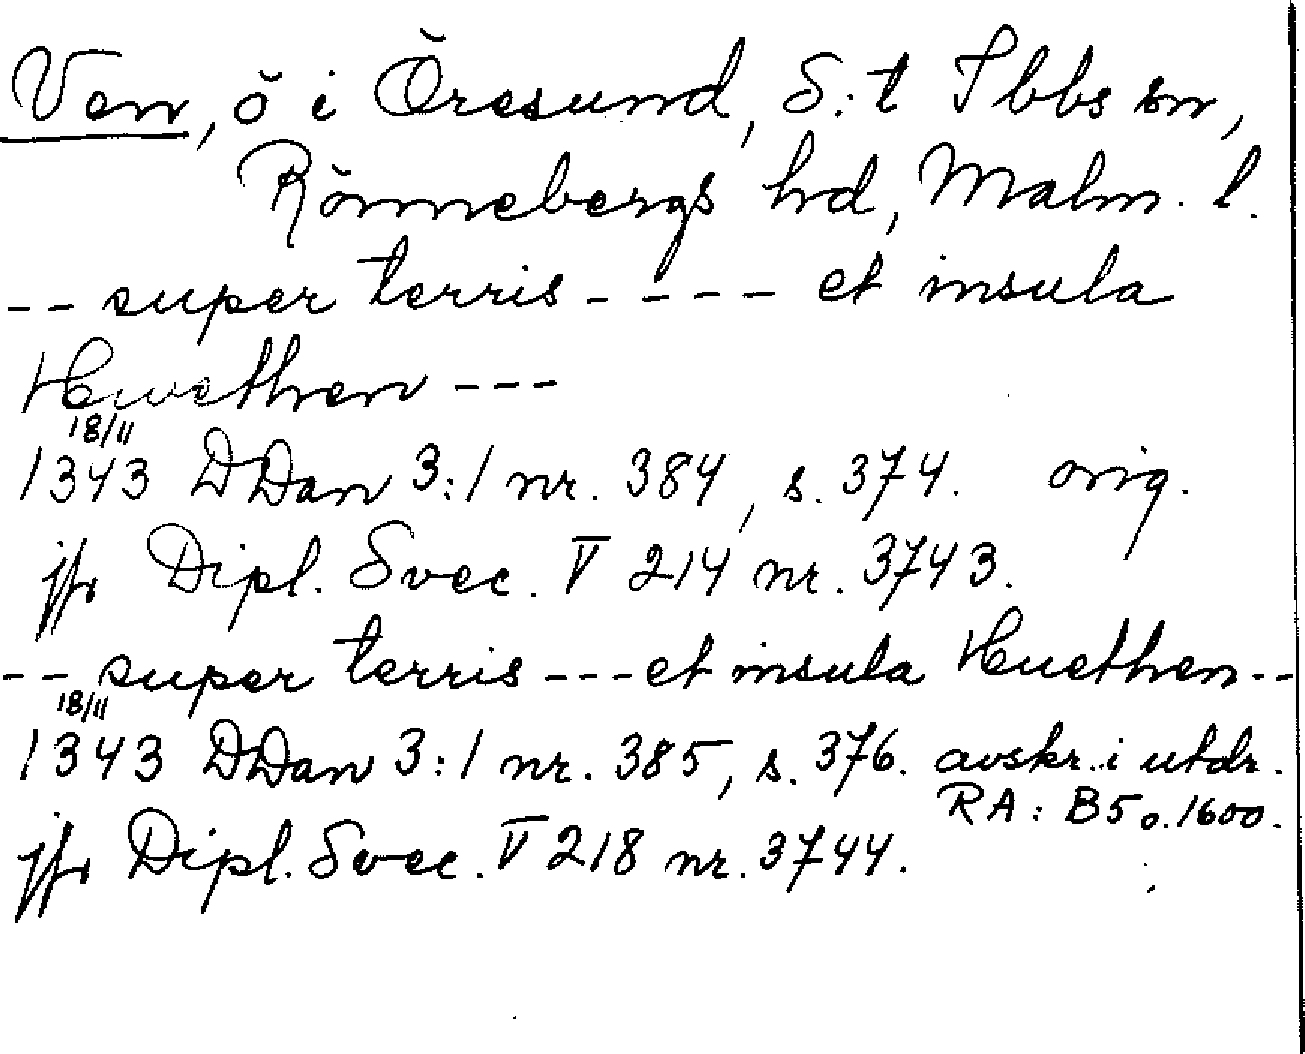 Ven, ö i Öresund, S:t Ibbs sn,
Rönnebergs hd, Malm. l.
-- super terris ---- et insula
Hwethen ---
18/11
1343 DDan 3:1 nr. 384, s. 374. orig.
jfr Dipl. Svec. V 214 nr. 3743.
-- super terris --- et insula Huethen --
18/11
1343 DDan 3:1 nr. 385, s. 376. avskr. i utdr.
RA: B5 o. 1600.
jfr Dipl. Svec. V 218 nr. 3744.